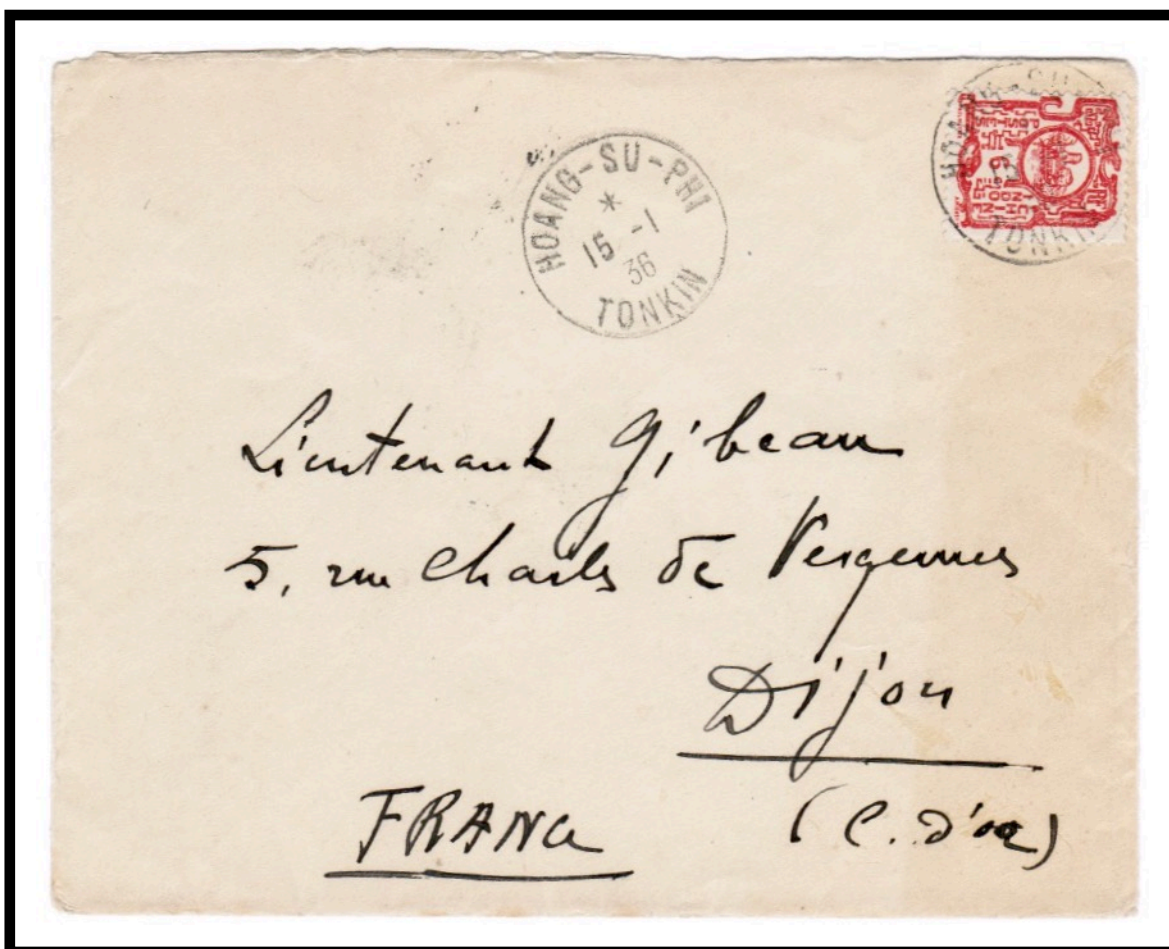 HOANG-SU-PHI
15 -1
36
TONKIN
HOANG-SU
TONKIN
RF
POSTES
INDOCHINE
6
Lieutenant Gibeau
5, rue Charles de Vergennes
Dijon
(C. d'or)
FRANCE